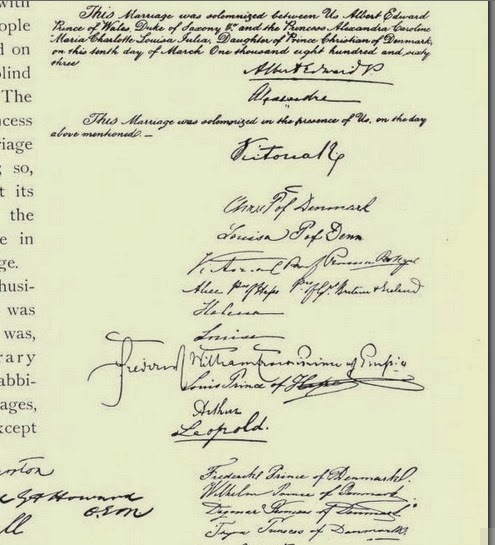 with
ople
d on
blind
The
ncess
riage
; so,
t its
the
e in
ge.
husi-
was
was,
rary
abbi-
ages,
xcept
This Marriage was solemnized between Us Albert Edward
Prince of Wales Duke of Saxony &c. and the Princess Alexandra Caroline
Maria Charlotte Louisa Julia, Daughter of Prince Christian of Denmark,
on this tenth day of March One thousand eight hundred and sixty
three
Albert Edward P
Alexandra
This Marriage was solemnized in the presence of Us, on the day
above mentioned.—
Victoria R
Chris P of Denmark
Louisa P of Denm.
Alice
Helena
Louise
Frederick William
Louis Prince of Hesse
Arthur
Leopold.
Frederik Prince of Denmark.
Wilhelm Prince of Denmark.
Dagmar Princess of Denmark
Thyra Princess of Denmark
Howard